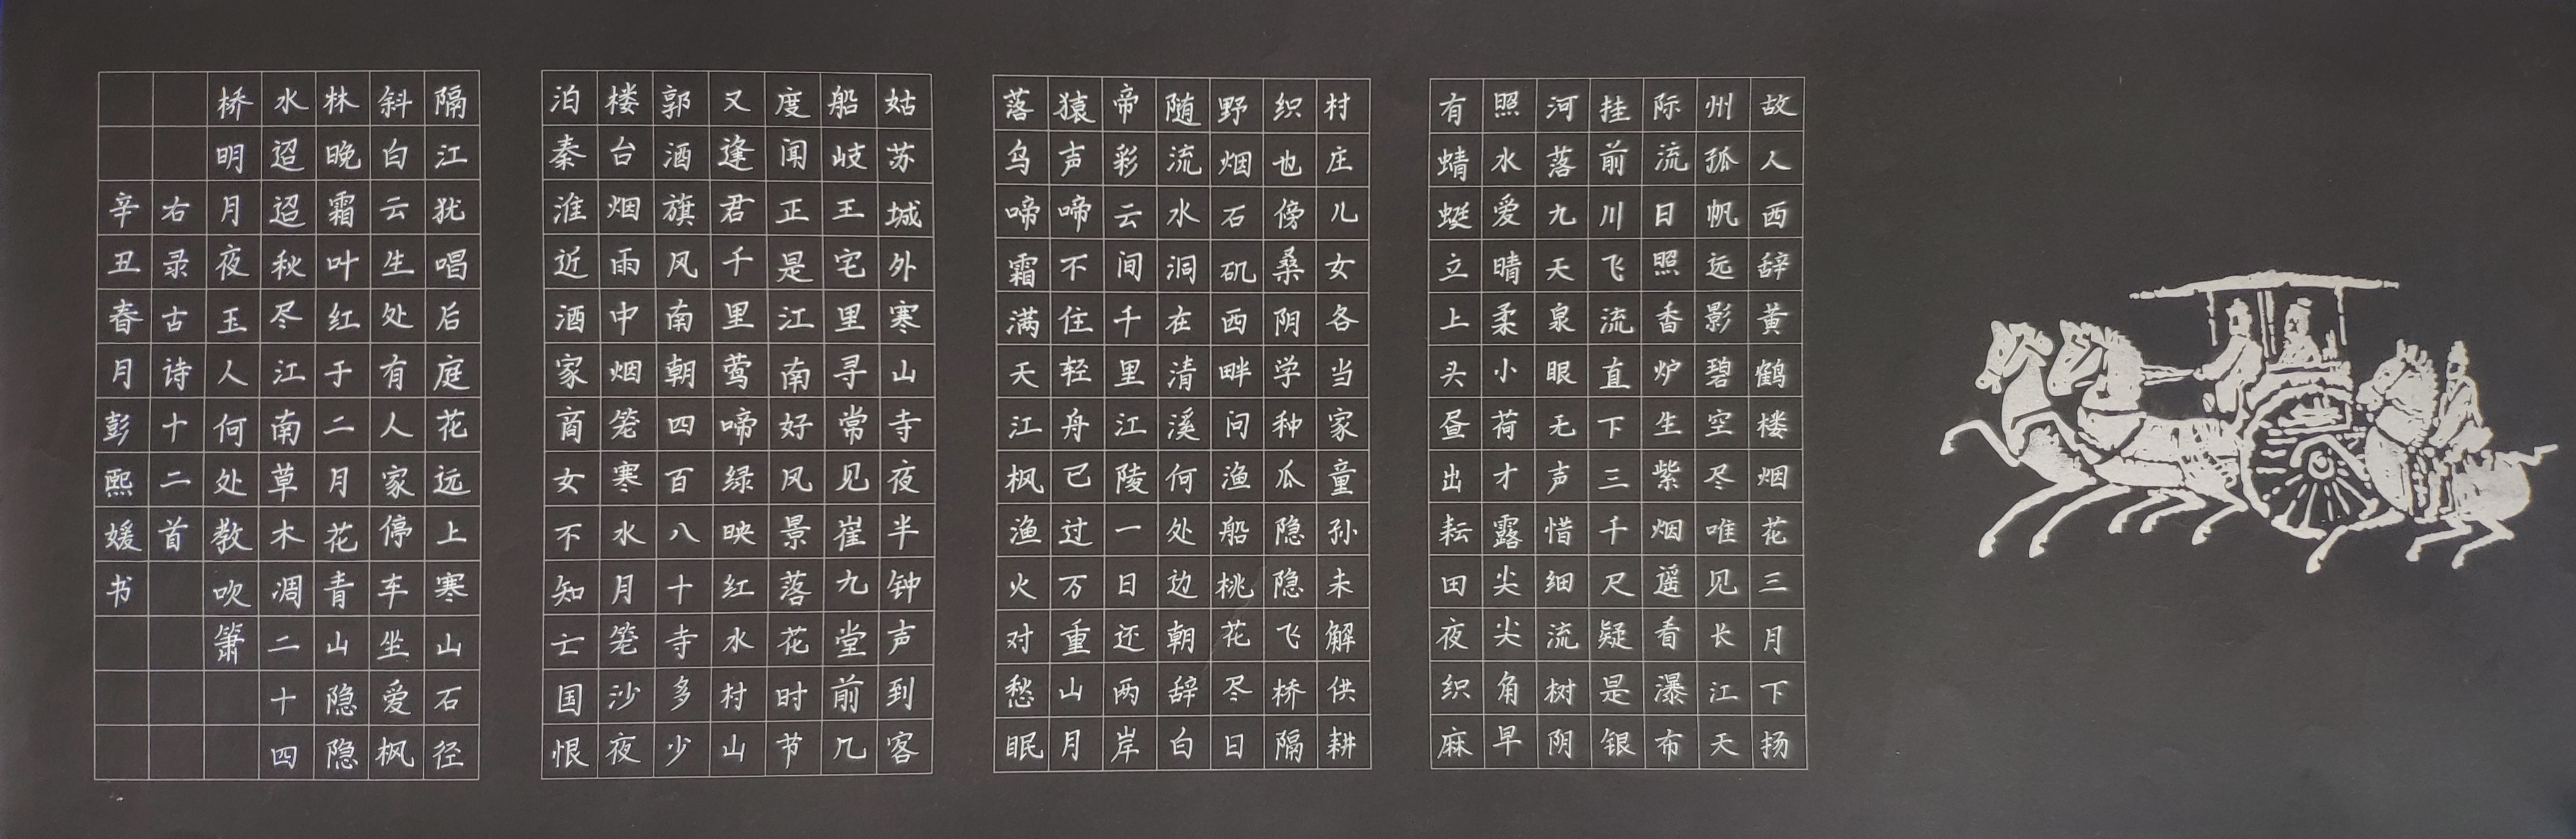 故人西辞黄鹤楼烟花三月下扬
州孤帆远影碧空尽唯见长江天
际流日照香炉生紫烟遥看瀑布
挂前川飞流直下三千尺疑是银
河落九天泉眼无声惜细流树阴
照水爱晴柔小荷才露尖尖角早
有蜻蜓立上头昼出耘田夜织麻
村庄儿女各当家童孙未解供耕
织也傍桑阴学种瓜隐隐飞桥隔
野烟石矶西畔问渔船桃花尽日
随流水洞在清溪何处边朝辞白
帝彩云间千里江陵一日还两岸
猿声啼不住轻舟已过万重山月
落乌啼霜满天江枫渔火对愁眠
姑苏城外寒山寺夜半钟声到客
船岐王宅里寻常见崔九堂前几
度闻正是江南好风景落花时节
又逢君千里莺啼绿映红水村山
郭酒旗风南朝四百八十寺多少
楼台烟雨中烟笼寒水月笼沙夜
泊秦淮近酒家商女不知亡国恨
隔江犹唱后庭花远上寒山石径
斜白云生处有人家停车坐爱枫
林晚霜叶红于二月花青山隐隐
水迢迢秋尽江南草木凋二十四
桥明月夜玉人何处教吹箫
右录古诗十二首
辛丑春月彭熙媛书